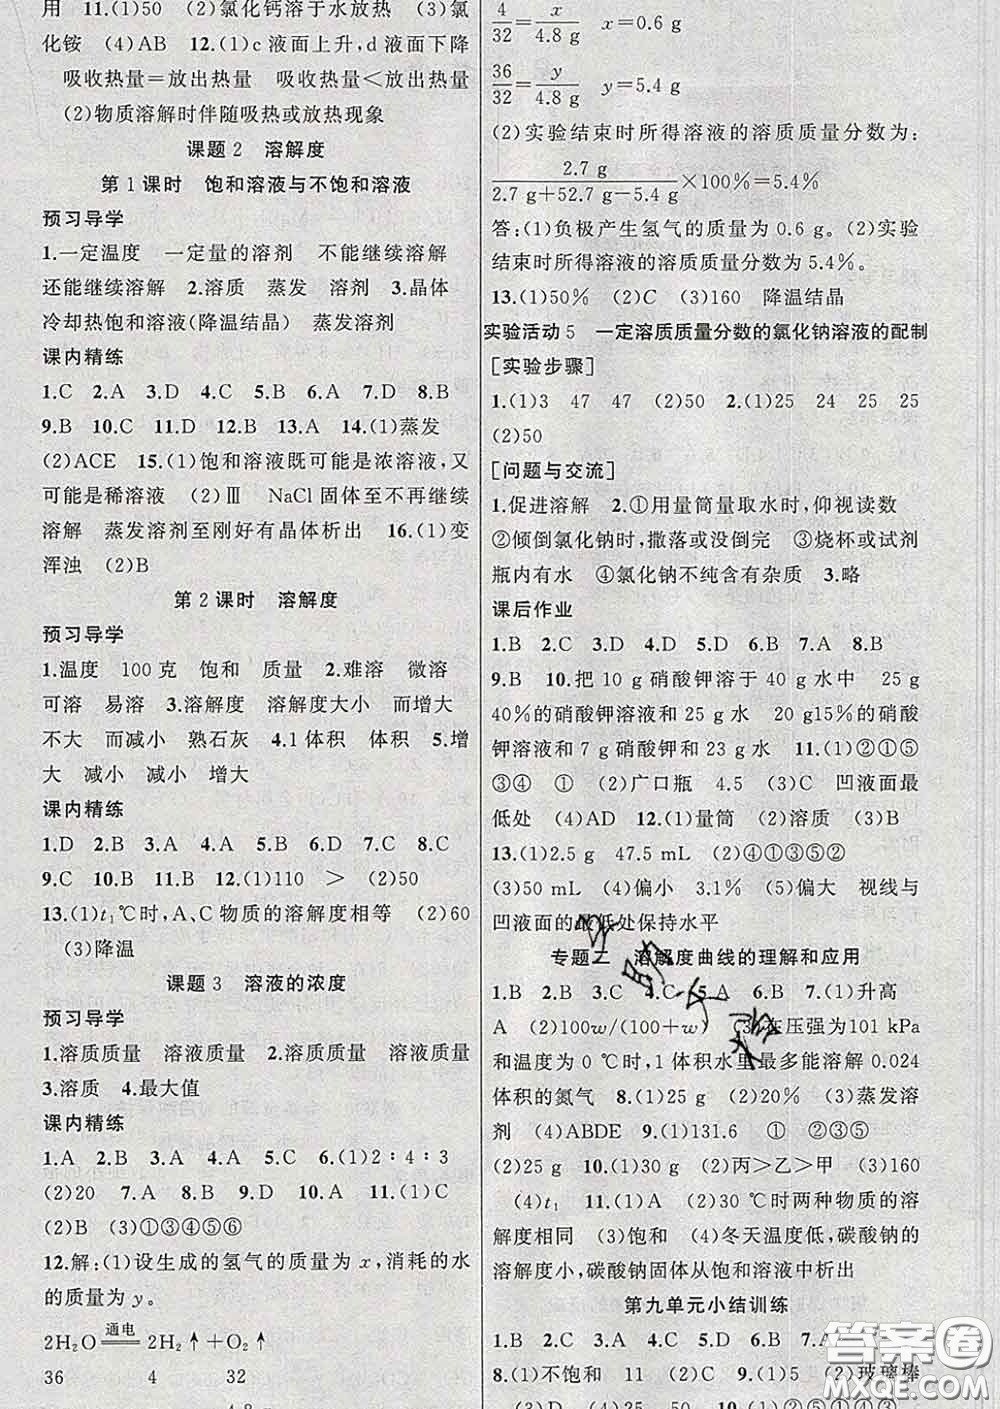 用　11.(1)50　(2)氯化钙溶于水放热　(3)氯
化铵　(4)AB　12.(1)c液面上升,d液面下降
吸收热量＝放出热量　吸收热量＜放出热量
(2)物质溶解时伴随吸热或放热现象
课题2　溶解度
第1课时　饱和溶液与不饱和溶液
预习导学
1.一定温度　一定量的溶剂　不能继续溶解
还能继续溶解　2.溶质　蒸发　溶剂　3.晶体
冷却热饱和溶液(降温结晶)　蒸发溶剂
课内精练
1.C　2.A　3.D　4.C　5.B　6.A　7.D　8.B
9.B　10.C　11.D　12.B　13.A　14.(1)蒸发
(2)ACE　15.(1)饱和溶液既可能是浓溶液,又
可能是稀溶液　(2)Ⅲ　NaCl固体至不再继续
溶解　蒸发溶剂至刚好有晶体析出　16.(1)变
浑浊　(2)B
第2课时　溶解度
预习导学
1.温度　100克　饱和　质量　2.难溶　微溶
可溶　易溶　3.溶解度　溶解度大小　而增大
不大　而减小　熟石灰　4.1体积　体积　5.增
大　减小　减小　增大
课内精练
1.D　2.B　3.A　4.A　5.B　6.C　7.C　8.C
9.C　10.B　11.B　12.(1)110　＞　(2)50
13.(1)t₁℃时,A、C物质的溶解度相等　(2)60
(3)降温
课题3　溶液的浓度
预习导学
1.溶质质量　溶液质量　2.溶质质量　溶液质量
3.溶质　4.最大值
课内精练
1.A　2.B　3.B　4.A　5.A　6.(1)2∶4∶3
(2)20　7.A　8.A　9.B　10.A　11.(1)C
(2)B　(3)①③④⑤⑥
12.解:(1)设生成的氢气的质量为x,消耗的水
的质量为y。
2H₂O 通电 2H₂↑＋O₂↑
36　4　32
4.8 g
4/32＝x/4.8 g　x＝0.6 g
36/32＝y/4.8 g　y＝5.4 g
(2)实验结束时所得溶液的溶质质量分数为:
2.7 g/(2.7 g＋52.7 g－5.4 g)×100％＝5.4％
答:(1)负极产生氢气的质量为0.6 g。(2)实验
结束时所得溶液的溶质质量分数为5.4％。
13.(1)50％　(2)C　(3)160　降温结晶
实验活动5　一定溶质质量分数的氯化钠溶液的配制
[实验步骤]
1.(1)3　47　47　(2)50　2.(1)25　24　25　25
(2)50
[问题与交流]
1.促进溶解　2.①用量筒量取水时,仰视读数
②倾倒氯化钠时,撒落或没倒完　③烧杯或试剂
瓶内有水　④氯化钠不纯含有杂质　3.略
课后作业
1.B　2.C　3.D　4.D　5.D　6.B　7.A　8.B
9.B　10.把10 g硝酸钾溶于40 g水中　25 g
40％的硝酸钾溶液和25 g水　20 g15％的硝酸
钾溶液和7 g硝酸钾和23 g水　11.(1)①②⑤
③④　①　(2)广口瓶　4.5　(3)C　凹液面最
低处　(4)AD　12.(1)量筒　(2)溶质　(3)B
13.(1)2.5 g　47.5 mL　(2)④①③⑤②
(3)50 mL　(4)偏小　3.1％　(5)偏大　视线与
凹液面的最低处保持水平
专题二　溶解度曲线的理解和应用
1.B　2.B　3.C　4.C　5.A　6.B　7.(1)升高
A　(2)100w/(100＋w)　(3)在压强为101 kPa
和温度为0 ℃时,1体积水里最多能溶解0.024
体积的氮气　8.(1)25 g　(2)20％　(3)蒸发溶
剂　(4)ABDE　9.(1)131.6　①　②③⑤
(2)25 g　10.(1)30 g　(2)丙＞乙＞甲　(3)160
(4)t₁　11.(1)A　(2)30 ℃时两种物质的溶
解度相同　(3)饱和　(4)冬天温度低,碳酸钠的
溶解度小,碳酸钠固体从饱和溶液中析出
第九单元小结训练
1.B　2.C　3.C　4.D　5.B　6.D　7.A
8.(1)不饱和　11　(2)C　9.(1)5　(2)玻璃棒
10.(1)D　(2)A　(3)①②③④⑤
答案圈
MXQE.COM